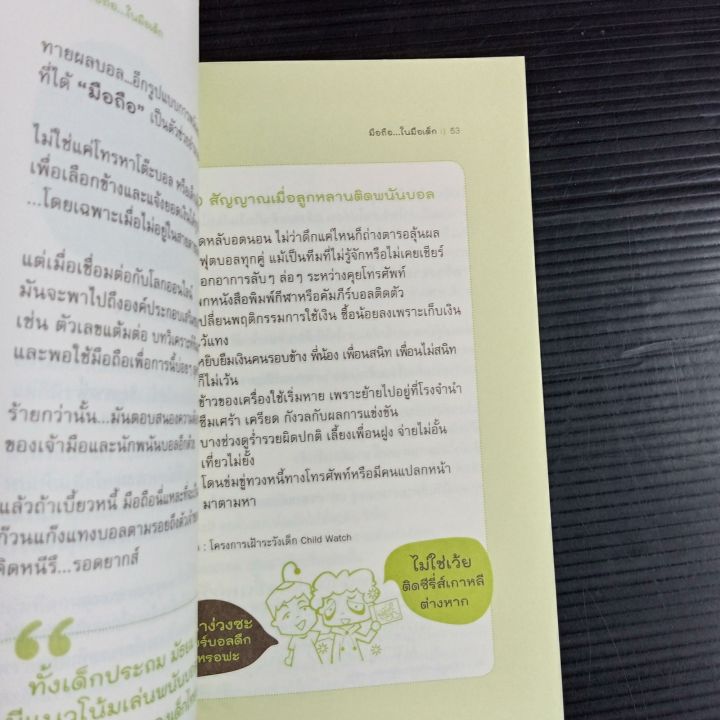 มือถือ...ในมือเด็ก
ทายผลบอล...อีกรูปแบบการพนัน
ที่ได้ “มือถือ” เป็นตัวช่วย
ไม่ใช่แค่โทรหาโต๊ะบอล
เพื่อเลือกข้างและแจ้งยอดเงิน
...โดยเฉพาะเมื่อไม่อยู่ใน
แต่เมื่อเชื่อมต่อกับโลกออนไลน์
มันจะพาไปถึงองค์ประกอบ
เช่น ตัวเลขแต้มต่อ
และพอใช้มือถือเพื่อการนี้
ร้ายกว่านั้น...มันตอบสนอง
ของเจ้ามือและนักพนันบอล
แล้วถ้าเบี้ยวหนี้ มือถือนี่แหละ
ก๊วนแก๊งแทงบอลตามรอย
คิดหนีรึ...รอดยากส์
“
ทั้งเด็กประถม
มีแนวโน้มเล่นพนัน
มือถือ...ในมือเด็ก :) 53
สัญญาณเมื่อลูกหลานติดพนันบอล
ดหลับอดนอน ไม่ว่าดึกแค่ไหนก็ถ่างตารอลุ้นผล
ฟุตบอลทุกคู่ แม้เป็นทีมที่ไม่รู้จักหรือไม่เคยเชียร์
อกอาการลับๆ ล่อๆ ระหว่างคุยโทรศัพท์
พกหนังสือพิมพ์กีฬาหรือคัมภีร์บอลติดตัว
เปลี่ยนพฤติกรรมการใช้เงิน ซื้อน้อยลงเพราะเก็บเงิน
ไว้แทง
หยิบยืมเงินคนรอบข้าง พี่น้อง เพื่อนสนิท เพื่อนไม่สนิท
ก็ไม่เว้น
ข้าวของเครื่องใช้เริ่มหาย เพราะย้ายไปอยู่ที่โรงจำนำ
ซึมเศร้า เครียด กังวลกับผลการแข่งขัน
บางช่วงดูร่ำรวยผิดปกติ เลี้ยงเพื่อนฝูง จ่ายไม่อั้น
เที่ยวไม่ยั้ง
โดนข่มขู่ทวงหนี้ทางโทรศัพท์หรือมีคนแปลกหน้า
มาตามหา
: โครงการเฝ้าระวังเด็ก Child Watch
ไม่ใช่เว้ย
ติดซีรี่ส์เกาหลี
ต่างหาก
าง่วงซะ
ร์บอลดึก
หรอฟะ